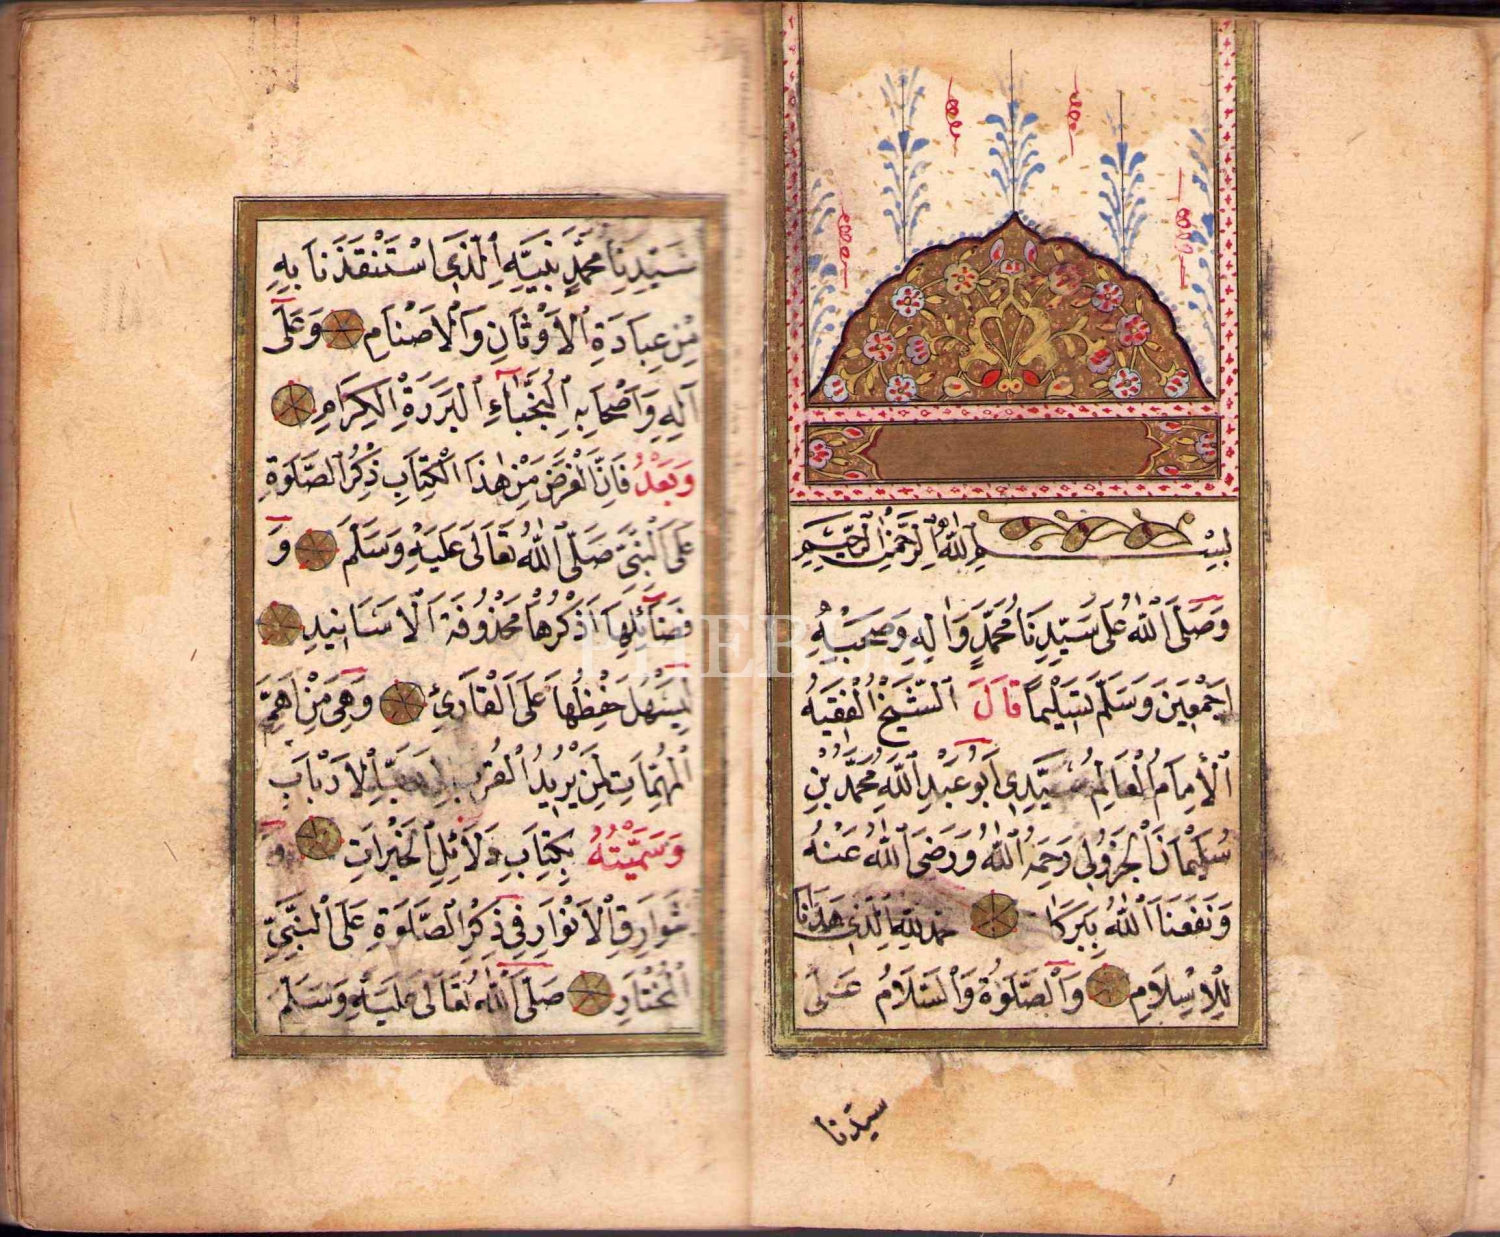 بِسْمِ اللّٰهِ الرَّحْمٰنِ الرَّحِيمِ
وَصَلَّى اللّٰهُ عَلٰى سَيِّدِنَا مُحَمَّدٍ وَاٰلِهِ وَصَحْبِهِ
اَجْمَعِينَ وَسَلَّمَ تَسْلِيمًا قَالَ الشَّيْخُ الْفَقِيهُ
الْاِمَامُ الْعَالِمُ سَيِّدِي اَبُو عَبْدِ اللّٰهِ مُحَمَّدُ بْنِ
سُلَيْمَانَ الْجَزُولِي رَحِمَهُ اللّٰهُ وَرَضِيَ اللّٰهُ عَنْهُ
وَنَفَعَنَا اللّٰهُ بِبَرَكَا حمد لِلّٰهِ الَّذِي هَدَانَا
لِلْاِسْلَامِ وَالصَّلٰوةُ وَالسَّلَامُ عَلٰى
سيدنا
سَيِّدِنَا مُحَمَّدٍ نَبِيِّهِ الَّذِي اسْتَنْقَذَنَا بِهِ
مِنْ عِبَادَةِ الْاَوْثَانِ وَالْاَصْنَامِ وَعَلٰى
اٰلِهِ وَاَصْحَابِهِ النُّجَبَاءِ الْبَرَرَةِ الْكِرَامِ
وَبَعْدُ فَاِنَّ الْغَرَضَ مِنْ هٰذَا الْكِتَابِ ذِكْرُ الصَّلٰوةِ
عَلَى النَّبِيِّ صَلَّى اللّٰهُ تَعَالٰى عَلَيْهِ وَسَلَّمَ وَ
فَضَائِلِهَا اَذْكُرُهَا مَحْذُوفَةَ الْاَسَانِيدِ
لِيَسْهُلَ حِفْظُهَا عَلَى الْقَارِئِ وَهِيَ مِنْ اَهَمِّ
الْمُهِمَّاتِ لِمَنْ يُرِيدُ الْقُرْبَ الْاَرْبَابِ
وَسَمَّيْتُهُ بِكِتَابِ دَلَائِلِ الْخَيْرَاتِ وَ
شَوَارِقِ الْاَنْوَارِ فِي ذِكْرِ الصَّلٰوةِ عَلَى النَّبِيِّ
الْمُخْتَارِ صَلَّى اللّٰهُ تَعَالٰى عَلَيْهِ وَسَلَّمَ